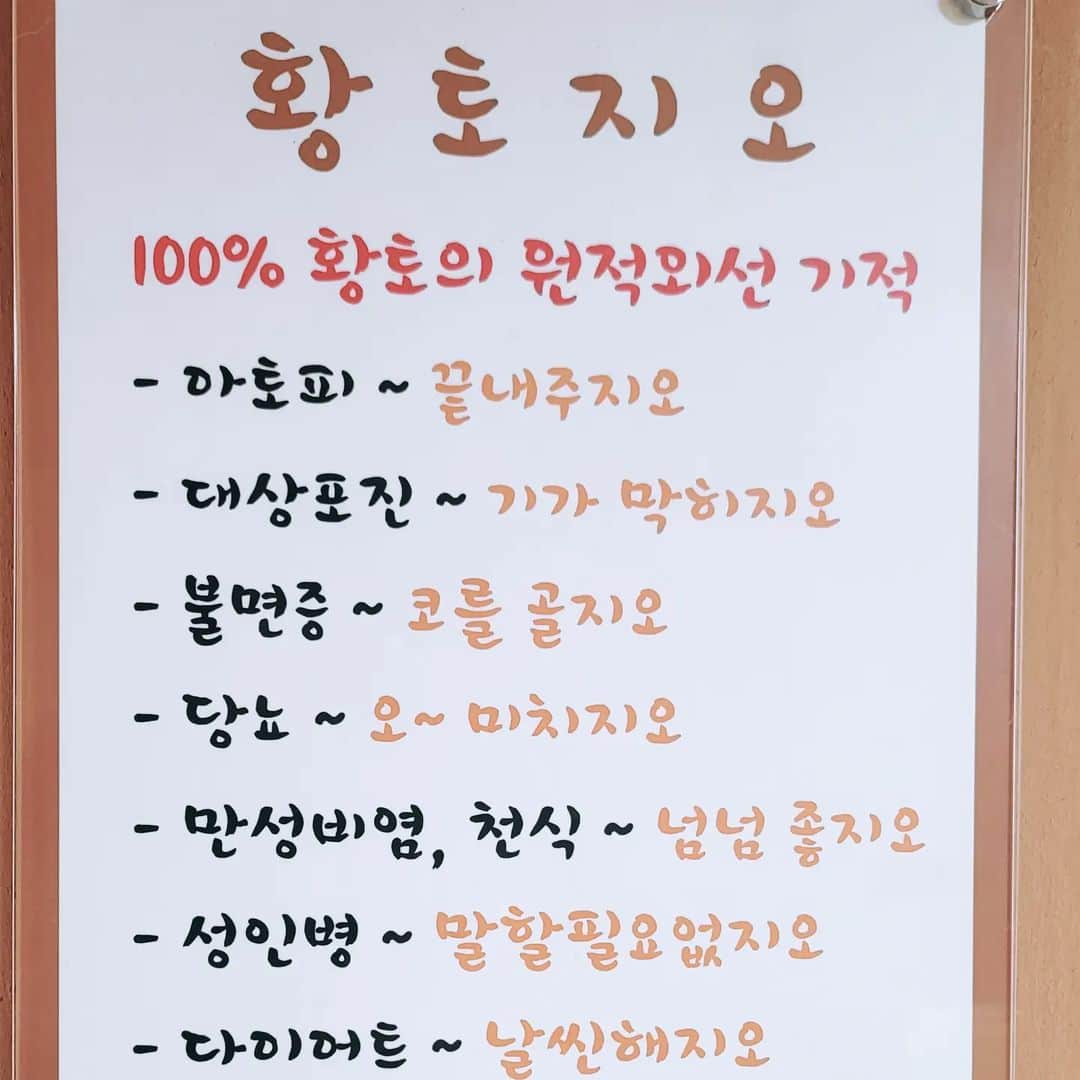 황토지오
100% 황토의 원적외선 기적
- 아토피 ~ 끝내주지오
- 대상포진 ~ 기가 막히지오
- 불면증 ~ 코를 골지오
- 당뇨 ~ 오~ 미치지오
- 만성비염, 천식 ~ 넘넘 좋지오
- 성인병 ~ 말할필요없지오
- 다이어트 ~ 날씬해지오